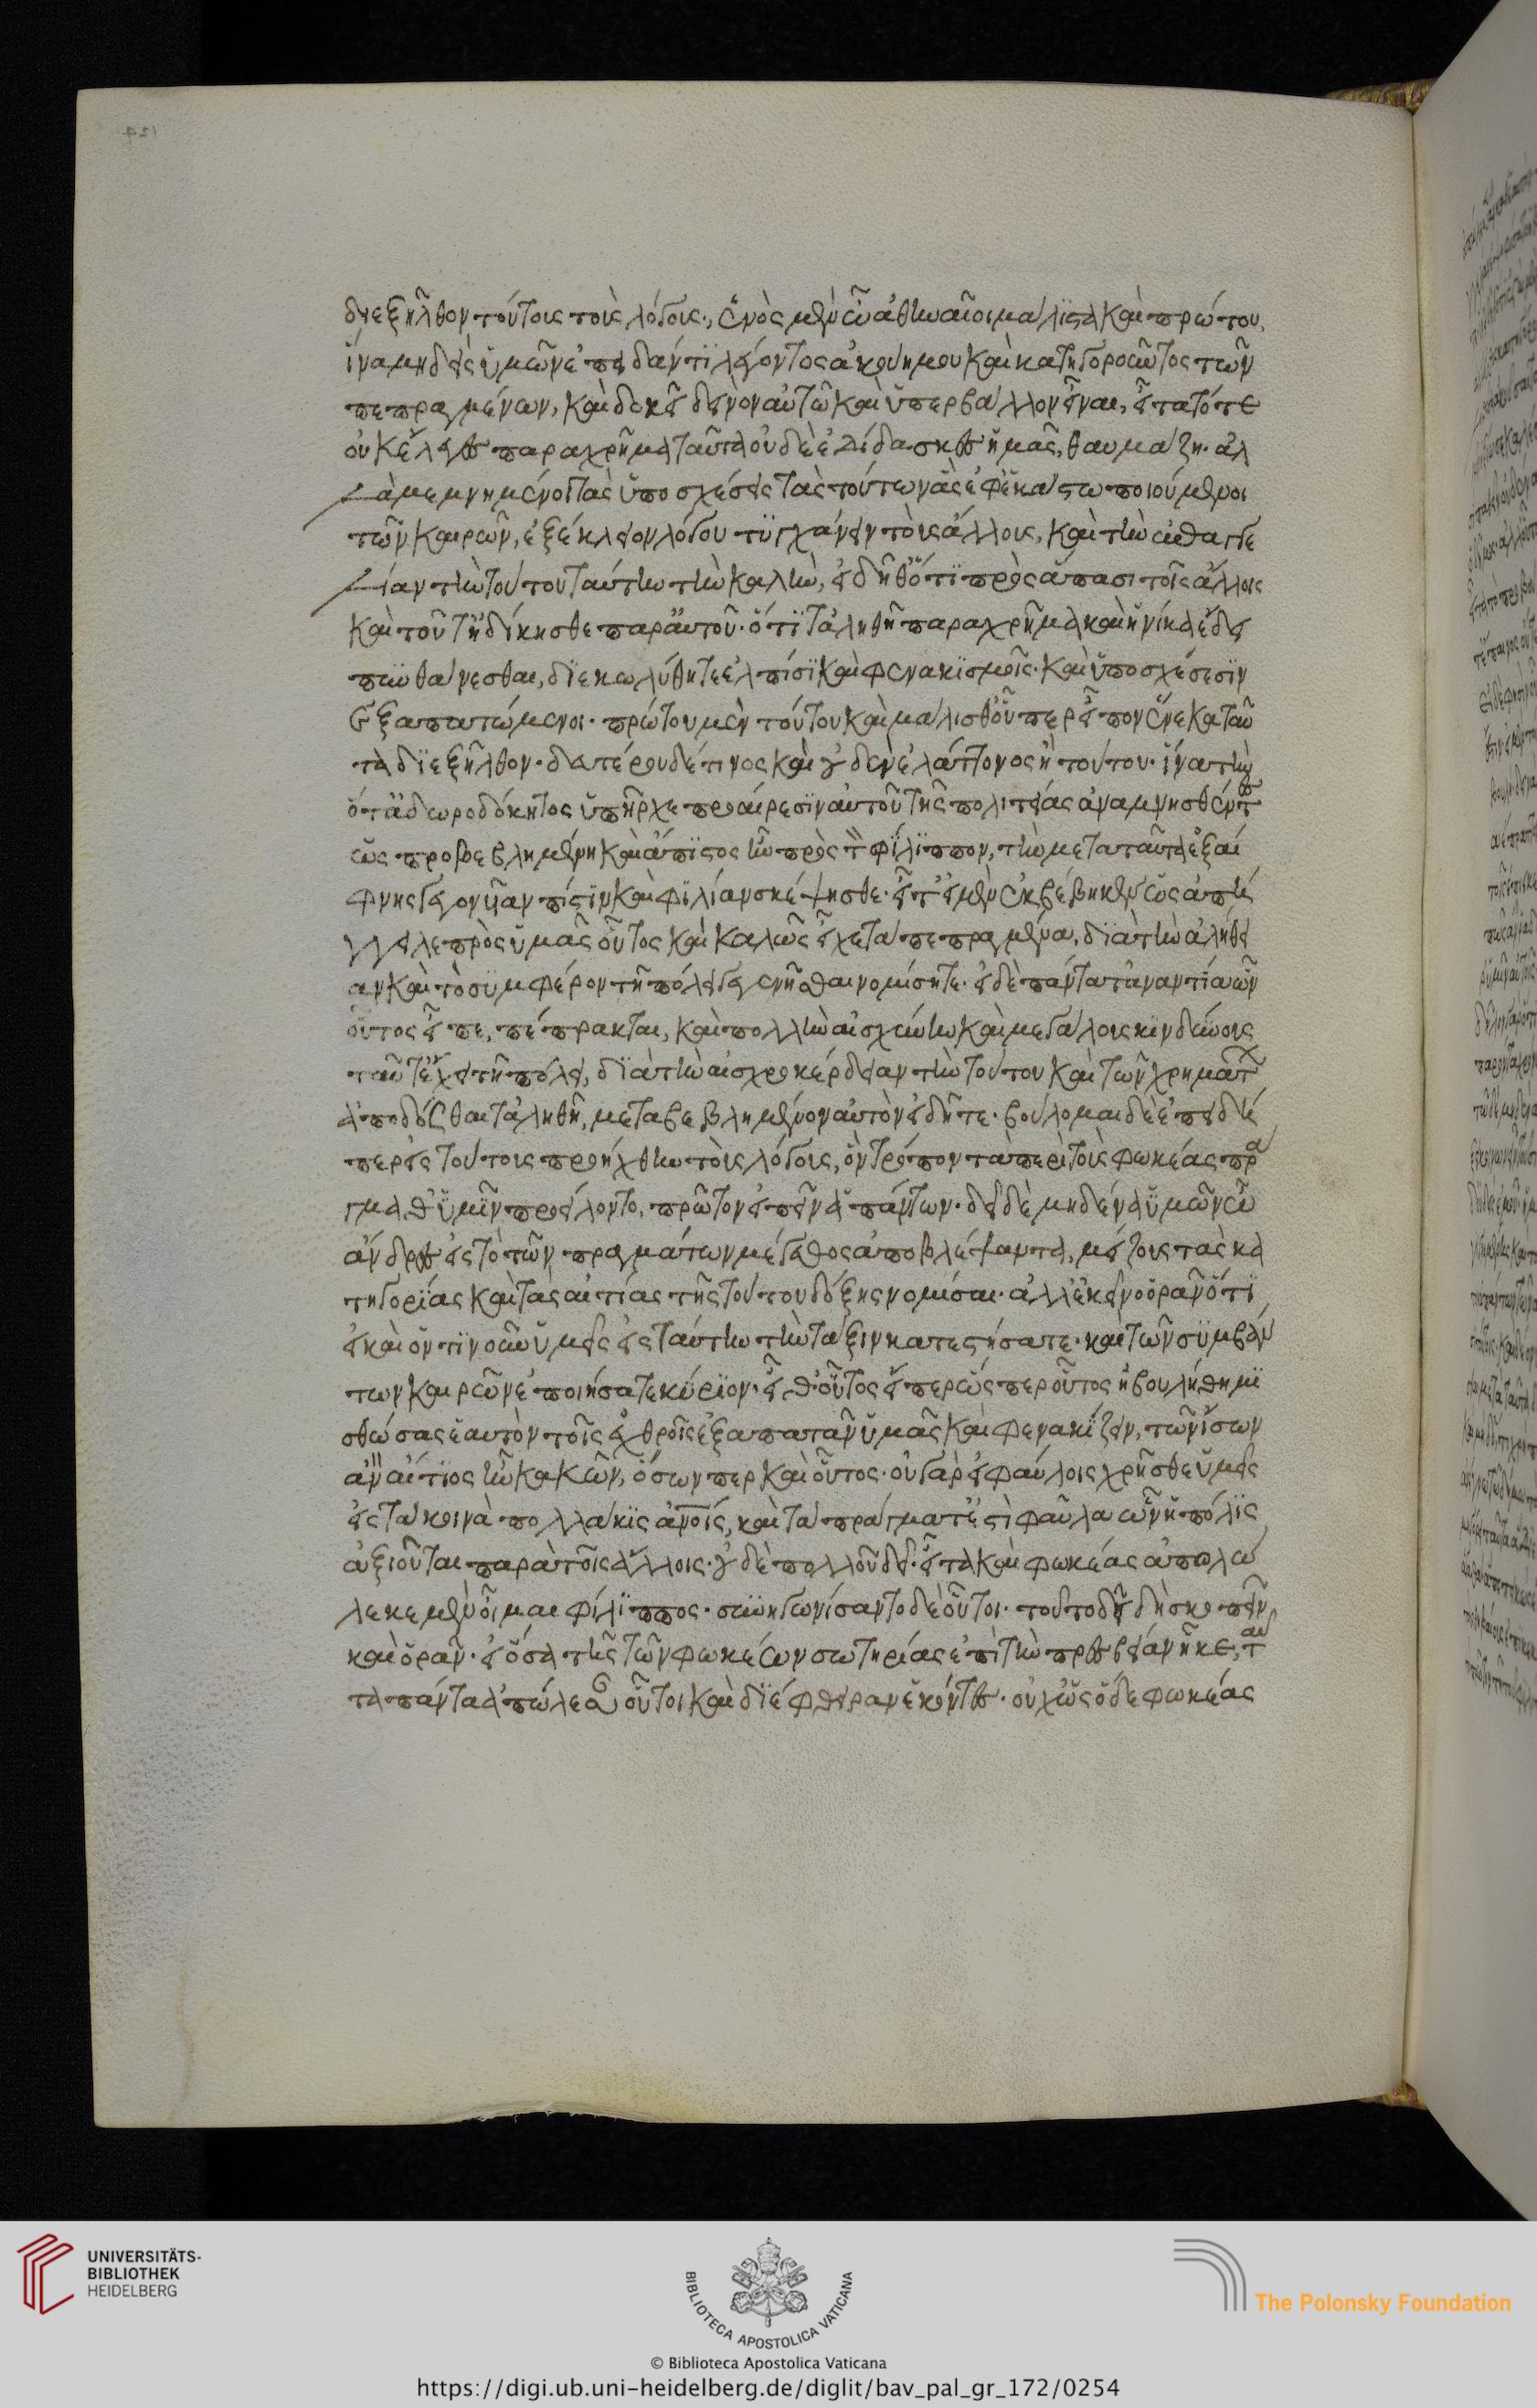 διεξῆλθον τούτοις τοῖς λόγοις., ἑνὸς μὲν ὦ ἀθηναῖοι μάλιστα καὶ πρώτου,
ἵνα μηδεὶς ὑμῶν ἐπειδάν τι λέγοντος ἀκούῃ μου καὶ κατηγοροῦντος τῶν
πεπραγμένων, καὶ δοκῇ δεινὸν αὐτῷ καὶ ὑπερβάλλον εἶναι, εἶτα τότε
οὐκ ἔλεγες παραχρῆμα ταῦτα οὐδὲ ἐδίδασκες ἡμᾶς, θαυμάζῃ. ἀλ
λὰ μεμνημένοι τὰς ὑποσχέσεις τὰς τούτων ἃς ἐφ' ἑκάστῳ ποιούμενοι
τῶν καιρῶν, ἐξέκλειον λόγου τυγχάνειν τοὺς ἄλλους, καὶ τὴν ἐπαγγε
λίαν τὴν τούτου ταύτην τὴν καλὴν, εἰδῆθ' ὅτι πρὸς ἅπασι τοῖς ἄλλοις
καὶ τοῦτ' ἠδίκησθε παρ' αὐτοῦ. ὅτι τἀληθῆ παραχρῆμα καὶ ἡνίκα ἔδει
πυθάνεσθαι, διεκωλύθητε ἐλπίσι καὶ φενακισμοῖς. καὶ ὑποσχέσεσιν
ἐξαπατώμενοι. πρώτου μὲν τούτου καὶ μάλισθ' οὗπερ εἶπον ἕνεκα ταῦ
τα διεξῆλθον. δευτέρου δὲ τίνος καὶ οὐδὲν ἐλάττονος ἢ τούτου. ἵνα τὴν
ὅτ' ἀδωροδόκητος ὑπῆρχε προαίρεσιν αὐτοῦ τῆς πολιτείας ἀναμνησθέντες
ὡς προβεβλημένη καὶ ἄπιστος ἦν πρὸς τὸν φίλιππον, τὴν μετὰ ταῦτα ἐξαί
φνης γεγονυῖαν πίστιν καὶ φιλίαν σκέψησθε. εἶτ' εἰ μὲν ἐκβέβηκεν ὡς ἀπήγ
γγειλε πρὸς ὑμᾶς οὗτος καὶ καλῶς ἔχει τὰ πεπραγμένα, διὰ τὴν ἀλήθει
αν καὶ τὸ συμφέρον τῇ πόλει γεγενῆσθαι νομίσητε. εἰ δὲ πάντα τἀναντία ὧν
οὗτος εἶπε, πέπρακται, καὶ πολλὴν αἰσχύνην καὶ μεγάλους κινδύνους
ταῦτ' ἔχει τῇ πόλει, διὰ τὴν αἰσχροκέρδειαν τὴν τούτου καὶ τῶν χρημάτων
ἀποδόσθαι τἀληθῆ, μεταβεβλημένον αὐτὸν εἰδῆτε. βούλομαι δὲ ἐπειδή
περ εἰς τούτους προήχθην τοὺς λόγους, ὃν τρόπον τὰ περὶ τοὺς φωκέας πρά
γμαθ' ὑμῶν προείλοντο, πρῶτον εἰπεῖν ἁπάντων. δεῖ δὲ μηδένα ὑμῶν ὦ
ἄνδρες εἰς τὸ τῶν πραγμάτων μέγεθος ἀποβλέψαντα, μείζους τὰς κα
τηγορίας καὶ τὰς αἰτίας τῆς τούτου δόξης νομίσαι. ἀλλ' ἐκεῖνο ὁρᾶν ὅτι
εἰ καὶ ὅντιν' οὖν ὑμεῖς εἰς ταύτην τὴν τάξιν κατεστήσατε. καὶ τῶν συμβάν
των καιρῶν ἐποιήσατε κύριον. εἶθ' οὗτος εἴπερ ὥσπερ οὗτος ἠβουλήθη μι
σθώσας ἑαυτὸν τοῖς ἐχθροῖς ἐξαπατᾶν ὑμᾶς καὶ φενακίζειν, τῶν ἴσων
ἂν αἴτιος ἦν κακῶν, ὅσωνπερ καὶ οὗτος. οὐ γὰρ εἰ φαύλοις χρῆσθε ὑμεῖς
εἰς τὰ κοινὰ πολλάκις ἀνοις, καὶ τὰ πράγματ' ἐστὶ φαῦλα ὧν ἡ πόλις
ἀξιοῦται παρὰ τοῖς ἄλλοις. οὐδὲ πολλοῦ δεῖ. εἶτα καὶ φωκέας ἀπολώ
λεκε μὲν οἶμαι φίλιππος. συνηγωνίσαντο δὲ οὗτοι. τοῦτο δεῖ δὴ σκοπεῖν
καὶ ὁρᾶν. εἰ ὅσα τῆς τῶν φωκέων σωτηρίας ἐπὶ τὴν πρεσβείαν ἧκε, ταῦ
τα πάντα ἀπώλεσαν οὗτοι καὶ διέφθειραν ἑκόντες. οὐχ ὡς ὅδε φωκέας
UNIVERSITÄTS-
BIBLIOTHEK
HEIDELBERG
BIBLIOTECA APOSTOLICA VATICANA
The Polonsky Foundation
© Biblioteca Apostolica Vaticana
https://digi.ub.uni-heidelberg.de/diglit/bav_pal_gr_172/0254